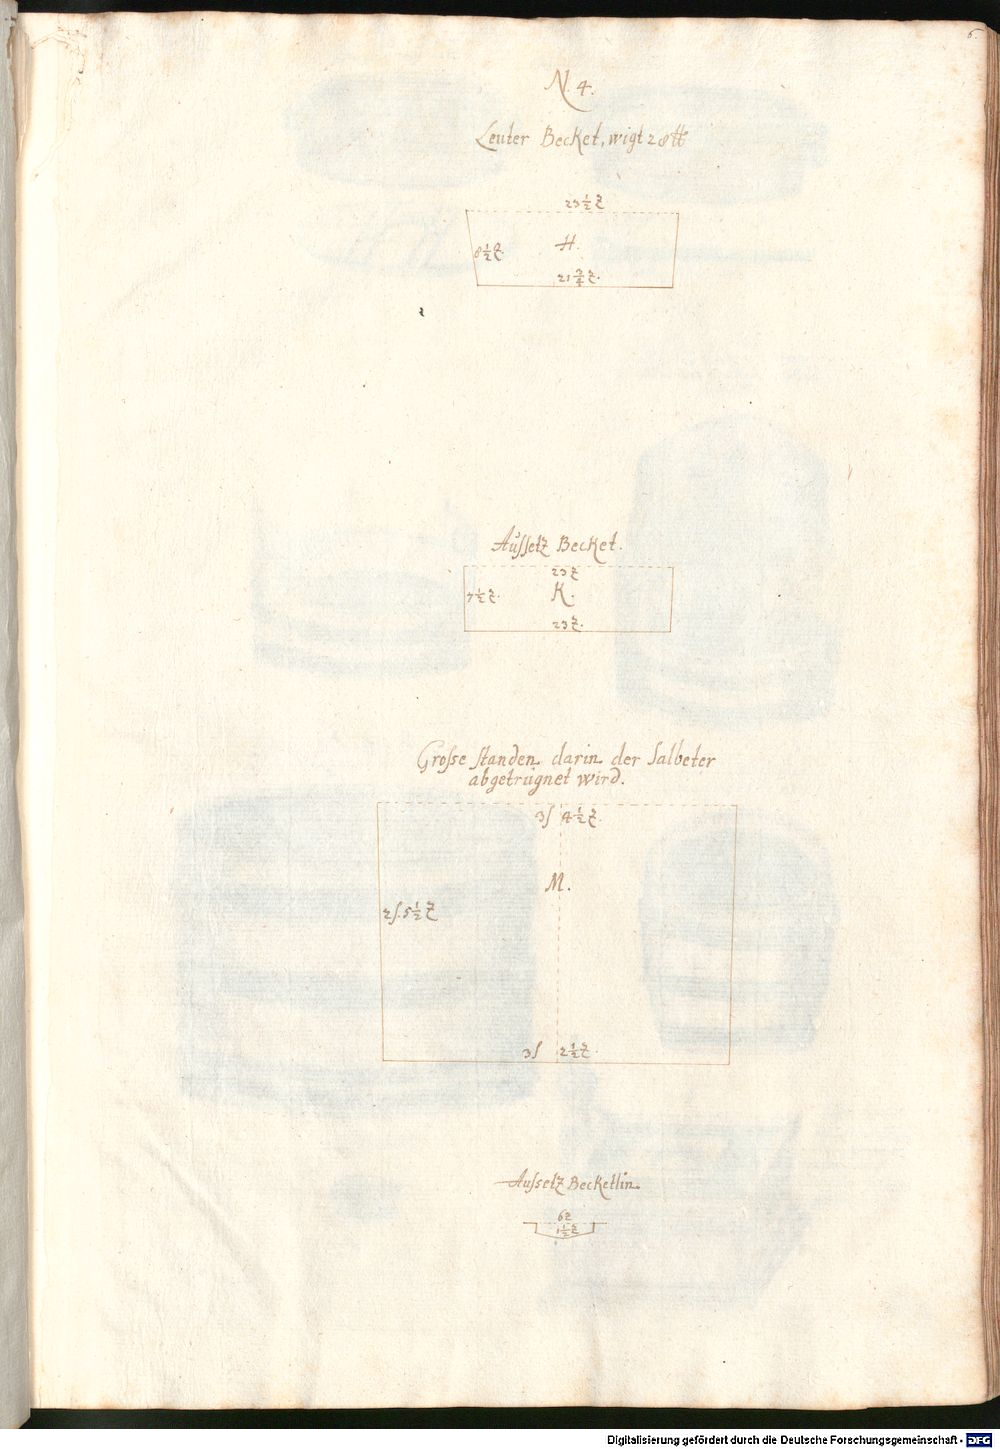 6.
N. 4.
Leuter Becket, wigt 28 ℔
23 1/2 Z
8 1/2 Z.
H.
21 3/4 Z.
Aussetz Becket.
23 Z
7 1/2 Z.
K.
23 Z.
Grosse standen darin der salbeter
abgetrügnet wird.
3 s 4 1/2 Z.
M.
2 s. 5 1/2 Z
3 s 2 1/2 Z.
Aussetz Becketlin.
6 Z
1 1/2 Z
Digitalisierung gefördert durch die Deutsche Forschungsgemeinschaft - DFG